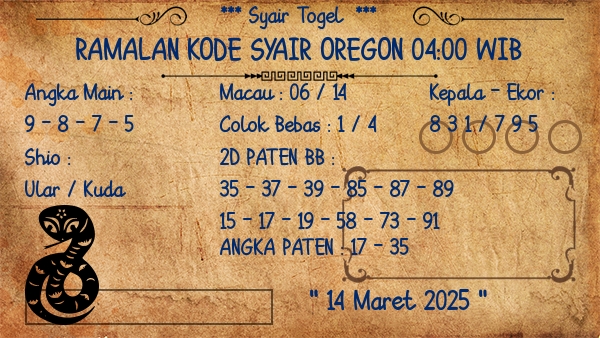 *** Syair Togel ***
RAMALAN KODE SYAIR OREGON 04:00 WIB
Angka Main : Macau : 06 / 14 Kepala - Ekor :
9 - 8 - 7 - 5 Colok Bebas : 1 / 4 8 3 1 / 7 9 5
Shio : 2D PATEN BB :
Ular / Kuda 35 - 37 - 39 - 85 - 87 - 89
15 - 17 - 19 - 58 - 73 - 91
ANGKA PATEN : 17 - 35
" 14 Maret 2025 "